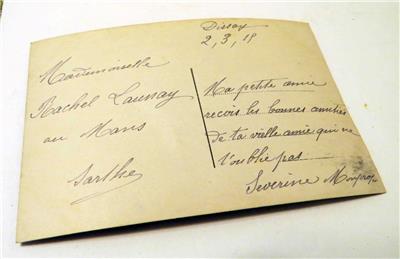 Dissay
2, 3, 19
Mademoiselle
Rachel Launay
au Mans
Sarthe
Ma petite amie
recois les bonnes amitiés
de ta vielle amie qui ne
t'oublie pas
Severine